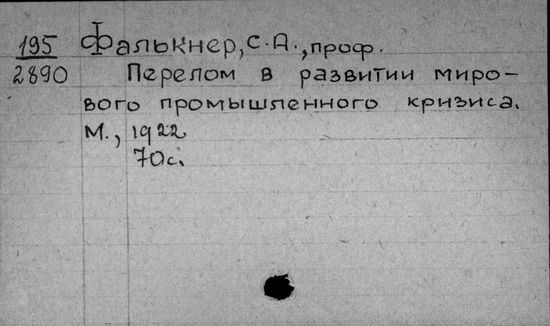 195 Фалькнер, С.А., проф.
2890 Перелом в развитии миро-
вого промышленного кризиса.
М., 1922
70с.